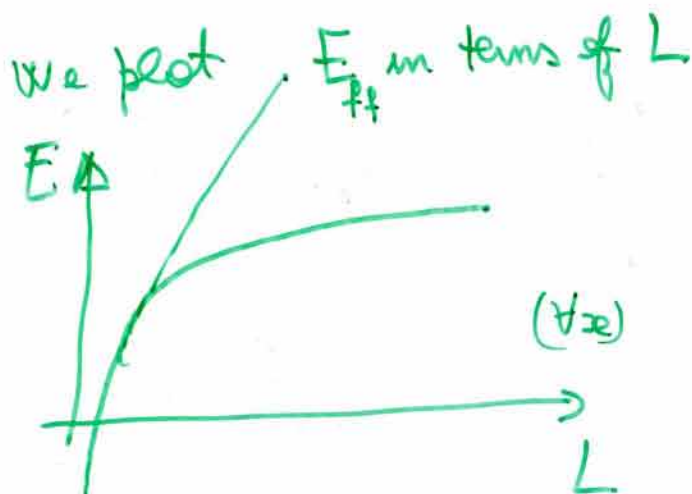 We plot E_ff in terms of L
E
(∀x)
L